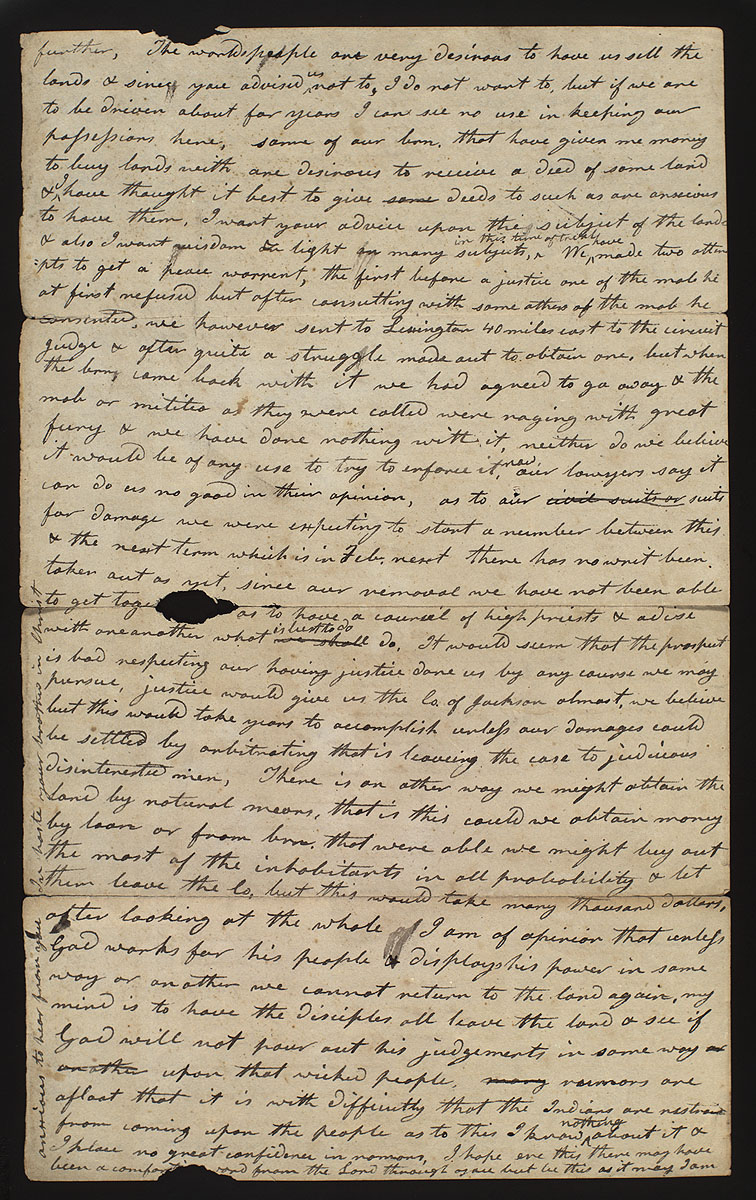 further, The worldspeople are very desirous to have us sell the
lands & since you advised us not to, I do not want to, but if we are
to be driven about for years I can see no use in keeping our
possessions here, some of our brn. that have given me money
to buy lands with are desirous to receive a deed of some land
& I have thought it best to give some deeds to such as are anxious
to have them, I want your advice upon the subject of the land
& also I want wisdom & light on many subjects, in this time of trouble. We have made two attem
pts to get a peace warrent, the first before a justice one of the mob he
at first refused but after consulting with some others of the mob he
consented, we however sent to Lexington 40 miles east to the circuit
judge & after quite a struggle made out to obtain one, but when
the brn, came back with it we had agreed to go away & the
mob or militia as they were called were raging with great
fury & we have done nothing with it, neither do we believe
it would be of any use to try to enforce it, now our lawyers say it
can do us no good in their opinion, as to our civil suits or suits
for damage we were expecting to start a number between this
& the next term which is in Feb. next there has no writ been
taken out as yet, since our removal we have not been able
to get toge as to have a counsel of high priests & advise
with one another what we shall is best to do do. It would seem that the prospect
is bad respecting our having justice done us by any course we may
pursue, justice would give us the Co. of Jackson almost, we believe
but this would take years to accomplish unless our damages could
be settled by arbitrating that is leaveing the case to judicious
disinterested men, There is an other way we might obtain the
Land by natural means, that is this could we obtain money
by loan or from brn. that were able we might buy out
the most of the inhabitants in all probability & let
them leave the Co. but this would take many thousand dollars,
after looking at the whole I am of opinion that unless
God works for his people & displays his power in some
way or another we cannot return to the land again, my
mind is to have the disciples all leave the land & see if
God will not pour out his judgements in some way or
another upon that wicked people, many rumors are
afloat that it is with difficulty that the Indians are restrain
from coming upon the people as to this I know nothing about it &
I place no great confidence in rumors, I hope ere this there may have
been a comforting word from the Lord through you but be this as it may I am
anxious to hear from you In haste your brother in Christ